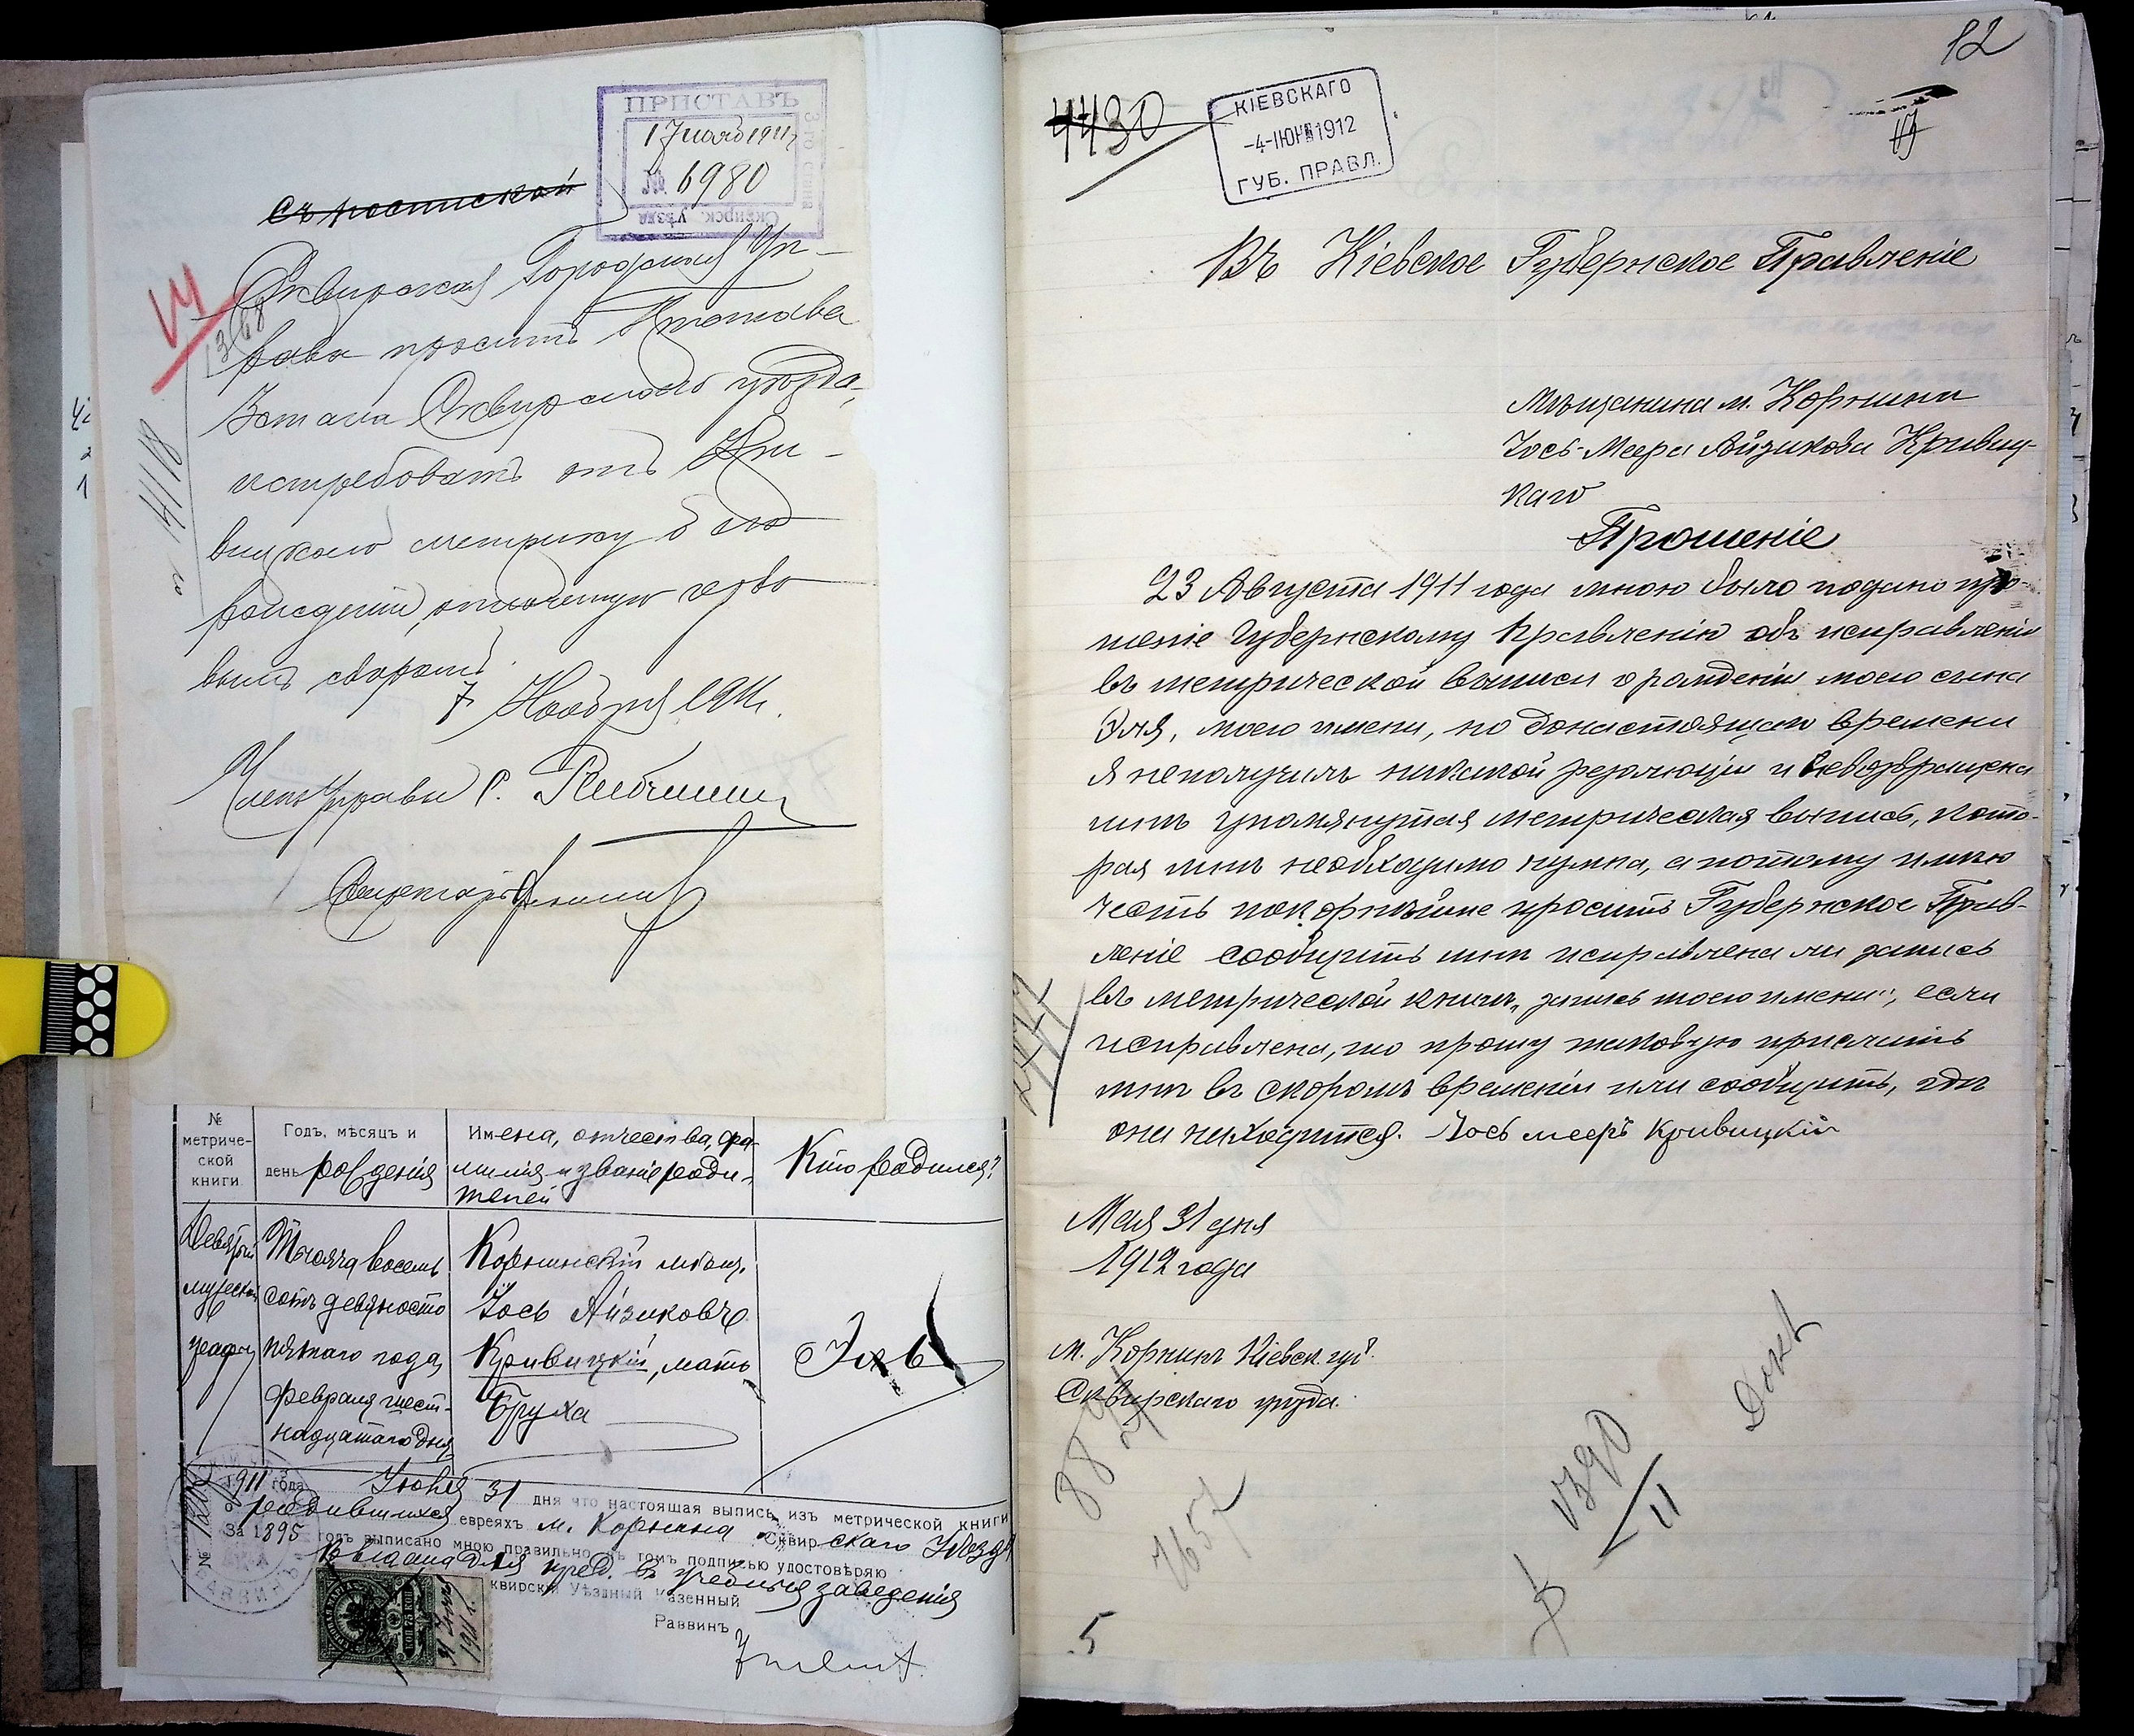 ПРИСТАВЪ
17 нояб 1911
№ 6980
Сквирск. уѣзда
3 го стана
Съ роспиской
Сквирская Городская Уп-
рава проситъ Пристава
3 стана Сквирского уѣзда,
истребовать отъ Кри-
вицкого метрику о его
рождении, оплоченную гербо
вымъ сборомъ.
7 Ноября 1911.
Членъ Управы
Секретарь
№ 1418
№ метриче-ской книги
Годъ, мѣсяцъ и день рожденія
Имена, отчества, фа-
милія и званіе роди-
телей
Кто родился?
Девятый
мужеской
графы
Тысяча восемь
сотъ девяносто
пятаго года,
февраля шест-
надцатаго дня
Корнинскій мѣщ.
Іось Айзиковъ
Кривицкій, мать
Бруха
Эль
1911 года Іюля 31 дня что настоящая выпись изъ метрической книги
о родившихся евреяхъ м. Корнина Сквирскаго уѣзда
За 1895 годъ выписано мною правильно въ томъ подписью удостовѣряю
Выдана для пред. въ учебныя заведенія
Сквирскій Уѣздный Казенный
Раввинъ
75 КОП
31 Іюля
1911 г.
12
4430
КІЕВСКАГО
-4-ІЮН 1912
ГУБ. ПРАВЛ.
Въ Кіевское Губернское Правленіе
Мѣщанина м. Корнина
Іось-Меера Айзикова Кривиц-
каго
Прошеніе
23 Августа 1911 года мною было подано про-
шеніе Губернскому Правленію объ исправленіи
въ метрической выписи о рожденіи моего сына
Эля, моего имени, но донастоящаго времени
я неполучилъ никакой резолюціи и невозвращена
мнѣ упомянутая метрическая выпись, кото-
рая мнѣ необходимо нужна, а потому имѣю
честь покорнѣйше просить Губернское Прав-
леніе сообщить мнѣ исправлена ли запись
въ метрической книгѣ „запись моего имени", если
исправлена, то прошу таковую прислать
мнѣ въ скоромъ времени или сообщить, гдѣ
она находится. Іось мееръ Кривицкій
Мая 31 дня
1912 года
м. Корнинъ Кіевск. губ.
Сквирскаго уѣзда.
1390
11
1657
5